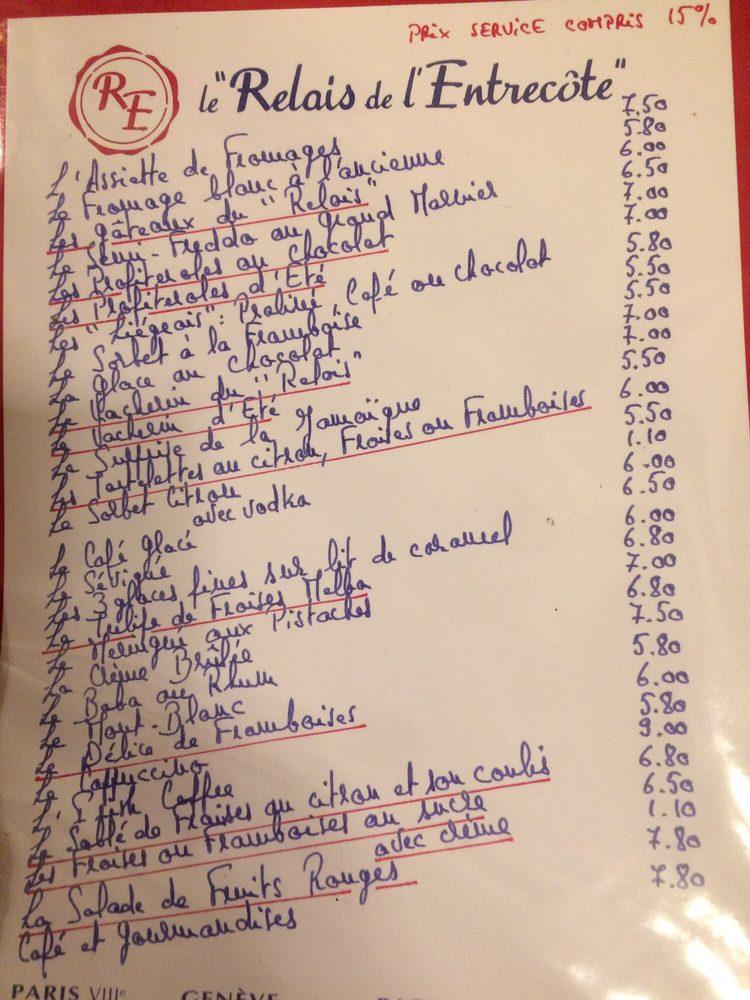 PRIX SERVICE COMPRIS 15%
RE
le "Relais de l'Entrecôte"
L'Assiette de Fromages 7.50
Le Fromage blanc à l'ancienne 5.80
Les gâteaux du "Relais" 6.00
Le Semi-Freddo au Grand Marnier 6.50
Les Profiteroles au Chocolat 7.00
Les Profiteroles d'Eté 7.00
Les "Liégeois": Praliné, Café ou chocolat 5.80
Le Sorbet à la Framboise 5.50
La Glace au Chocolat 5.50
Le Vacherin du "Relais" 7.00
Le Vacherin d'Eté 7.00
La Surprise de la Jamaïque 5.50
Les Tartelettes au citron, Fraises ou Framboises 6.00
Le Sorbet Citron 5.50
avec vodka 1.10
Le Café Glacé 6.00
Le Sévigné 6.50
Les 3 glaces fines sur lit de caramel 6.00
La Tulipe de Fraises Melba 6.80
Le Meringué aux Pistaches 7.00
La Crème Brûlée 6.80
Le Baba au Rhum 7.50
Le Mont-Blanc 5.80
Le Délice de Framboises 6.00
Le Cappuccino 5.80
L'Irish Coffee 9.00
Le Sablé de Fraises au citron et son coulis 6.80
Les Fraises ou Framboises au sucre 6.50
avec crème 1.10
La Salade de Fruits Rouges 7.80
Café et Gourmandises 7.80
PARIS VIIIe GENÈVE